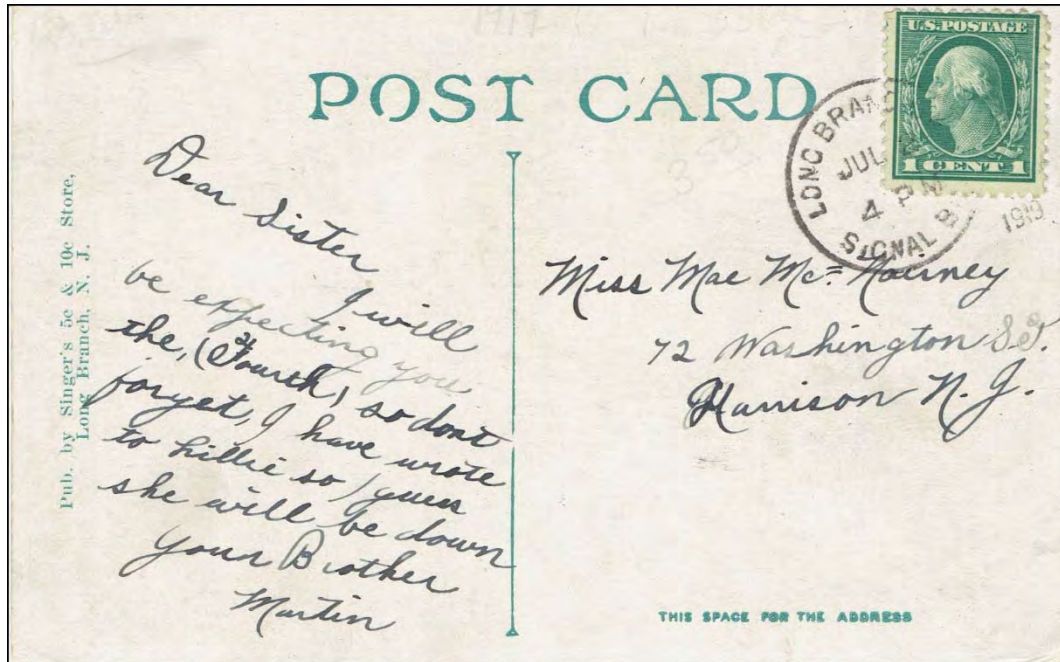 POST CARD
U.S. POSTAGE
1 CENT 1
LONG BRANC
JUL
4 PM
1919
SIGNAL
Pub. by Singer's 5c & 10c Store,
Long Branch, N. J.
Dear Sister
I will
be expecting you
the, (Fourth) so dont
forget, I have wrote
to Lillie so I guess
she will be down
Your Brother
Martin
Miss Mae Mc=
72 Washington St.
Harrison N. J.
THIS SPACE FOR THE ADDRESS